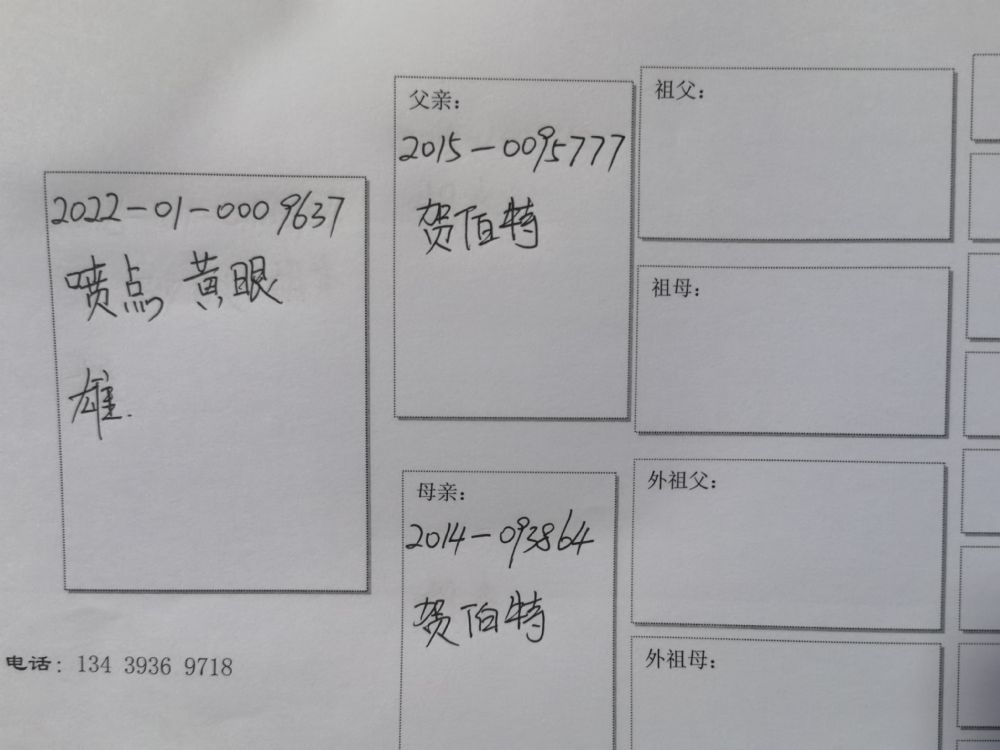 2022-01-0009637
喷点 黄眼
雄.
电话: 134 3936 9718
父亲:
2015-0095777
贺佰特
母亲:
2014-093864
贺伯特
祖父:
祖母:
外祖父:
外祖母: